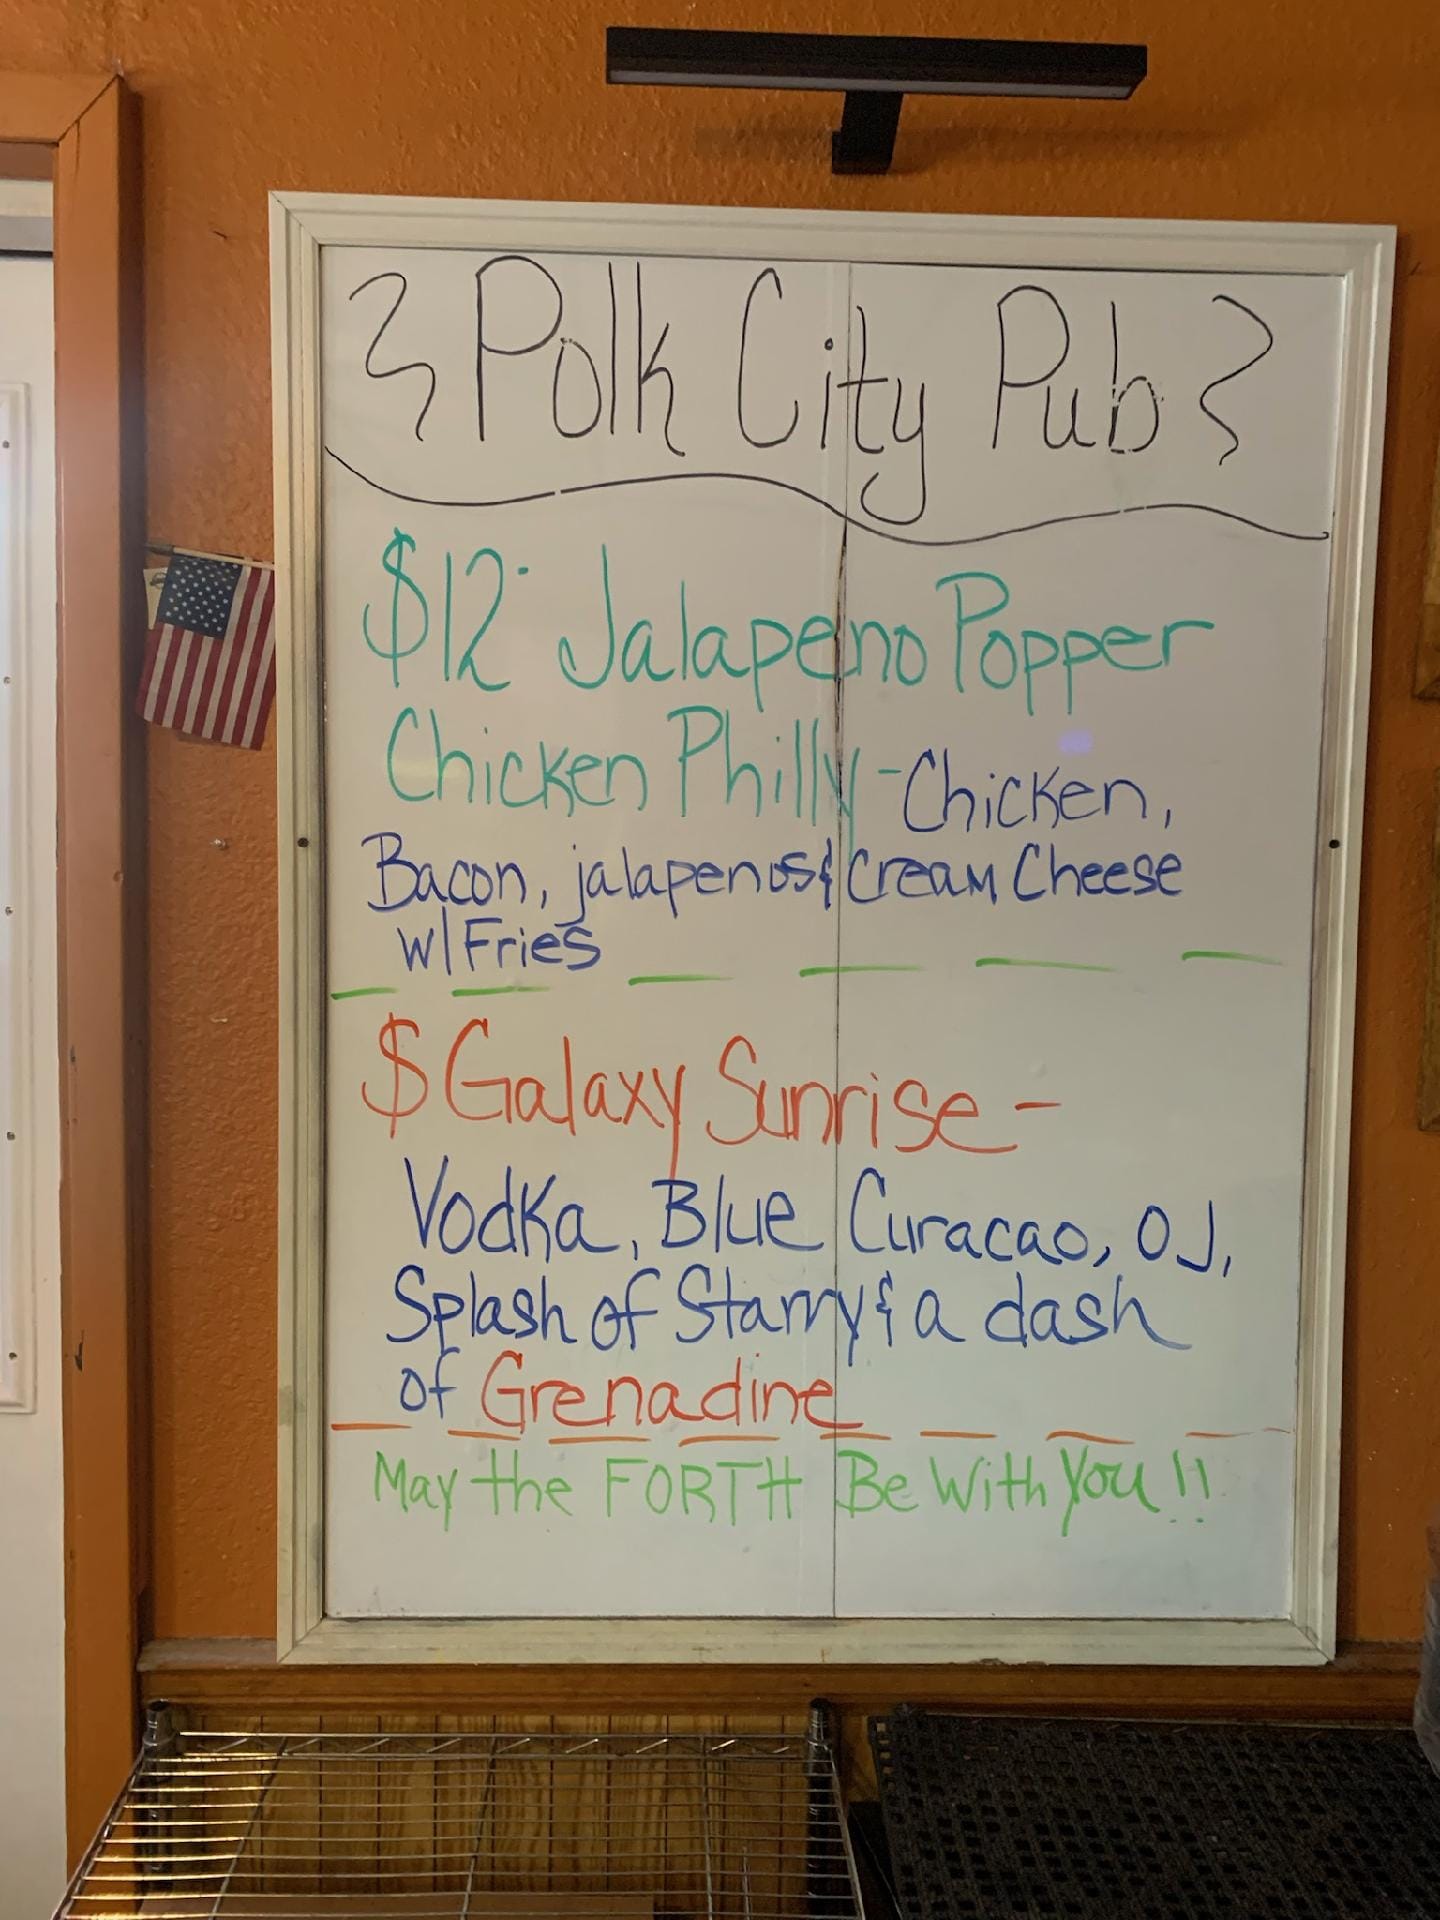 Polk City Pub
$12 Jalapeno Popper
Chicken Philly - Chicken,
Bacon, jalapenos & Cream Cheese
w/ Fries
$ Galaxy Sunrise -
Vodka, Blue Curacao, OJ,
Splash of Starry & a dash
of Grenadine
May the FORTH Be With You!!